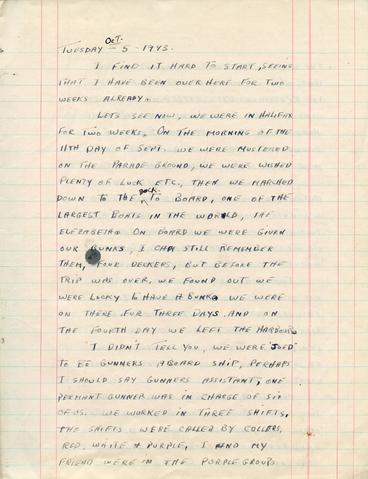 TUESDAY OCT. 5 - 1943.
I FIND IT HARD TO START, SEEING
THAT I HAVE BEEN OVER HERE FOR TWO
WEEKS ALREADY.
LETS SEE NOW, WE WERE IN HALIFAX
FOR TWO WEEKS. ON THE MORNING OF THE
11TH DAY OF SEPT. WE WERE MUSTERED
ON THE PARADE GROUND, WE WERE WISHED
PLENTY OF LUCK ETC, THEN WE MARCHED
DOWN TO THE DOCK TO BOARD, ONE OF THE
LARGEST BOATS IN THE WORLD, THE
ELEZABETH. ON BOARD WE WERE GIVEN
OUR BUNKS, I CAN STILL REMEMBER
THEM, FOUR DECKERS, BUT BEFORE THE
TRIP WAS OVER, WE FOUND OUT WE
WERE LUCKY TO HAVE A BUNK. WE WERE
ON THERE FOR THREE DAYS AND ON
THE FOURTH DAY WE LEFT THE HARBOUR.
I DIDN'T TELL YOU, WE WERE "JOED"
TO BE GUNNERS ABOARD SHIP, PERHAPS
I SHOULD SAY GUNNERS ASSISTANT, ONE
PERMONT GUNNER WAS IN CHARGE OF SIX
OF US. WE WORKED IN THREE SHIFTS,
THE SHIFTS WERE CALLED BY COLLERS,
RED, WHITE & PURPLE, I AND MY
FRIEND WERE IN THE PURPLE GROUP.